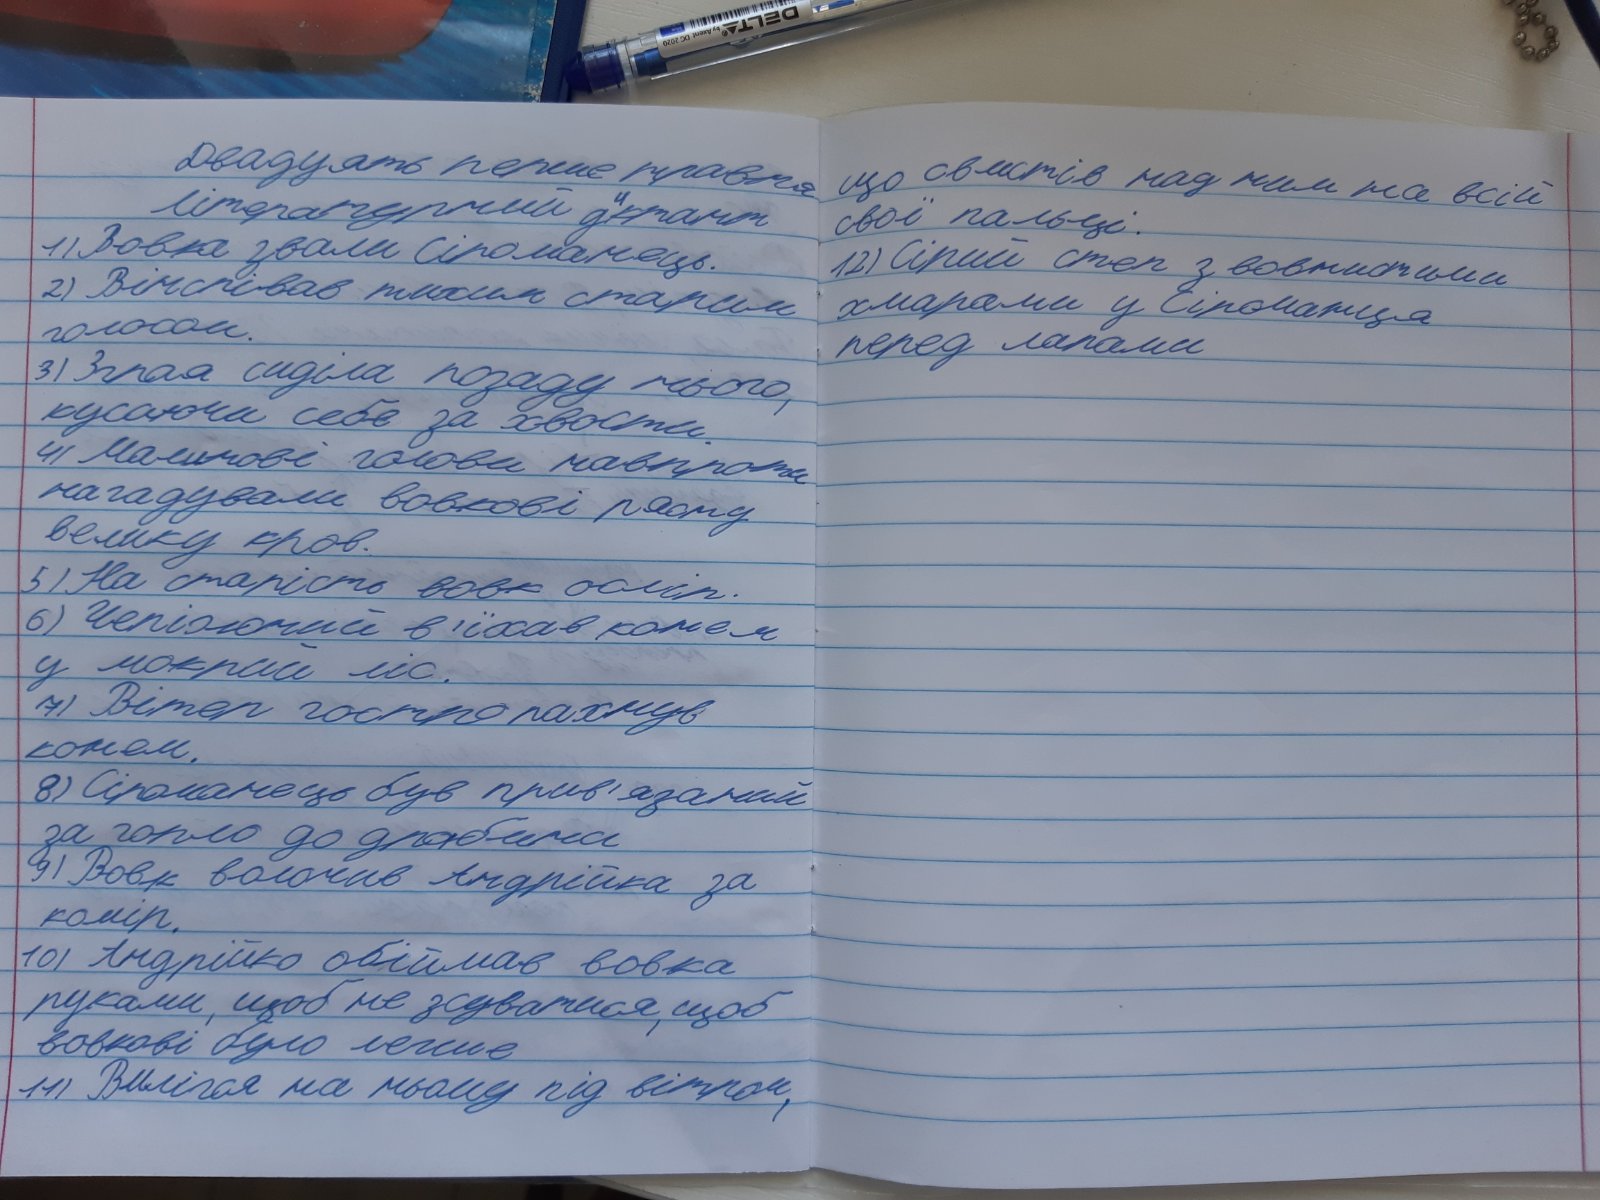 DELTA by Axent DC 2020
Двадцять перше травня
Літературний диктант
1) Вовка звали Сіроманець.
2) Він співав тихим старим
голосом.
3) Зграя сиділа позаду нього,
кусаючи себе за хвости.
4) Малинові голови навпроти
нагадували вовкові рясну
велику кров.
5) На старість вовк осліп.
6) Чепіжний в'їхав конем
у мокрий ліс.
7) Вітер гостро пахнув
конем.
8) Сіроманець був прив'язаний
за горло до драбини
9) Вовк волочив Андрійка за
комір.
10) Андрійко обіймав вовка
руками, щоб не зсуватися, щоб
вовкові було легше
11) Виліг на ньому під вітром,
що свистів над ним на всій
свої пальці.
12) Сірий степ з вовнистими
хмарами у Сіроманця
перед лапами